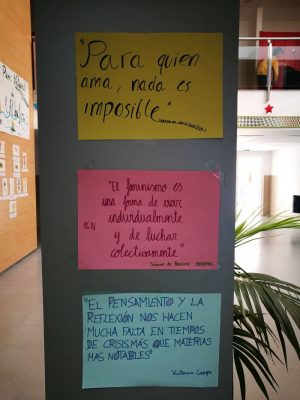 "Para quien
ama, nada es
imposible"
"El feminismo es
una forma de vivir
individualmente
y de luchar
colectivamente"
Simone de Beauvoir
"EL PENSAMIENTO Y LA
REFLEXIÓN NOS HACEN
MUCHA FALTA EN TIEMPOS
DE CRISIS, MÁS QUE MATERIAS
MAS NOTABLES"
Victoria Camps